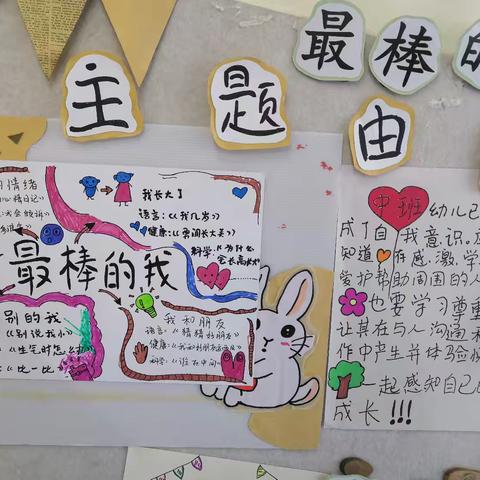 最棒的
主题
由
情绪
心情日记
我长大了
语言:《我几岁》
健康:《勇闯长大关》
科学:《为什么会长高》
最棒的我
别的我
《别说我小》
《生气时怎么
《比一比》
我和朋友
语言:《猜猜好朋友》
健康:
科学:《谁在中间》
中班幼儿已
成了自我意识。应
知道存感激,学
爱护帮助周围的人
也要学习尊重
让其在与人沟通和
作中产生并体验快
一起感知自己的
成长!!!